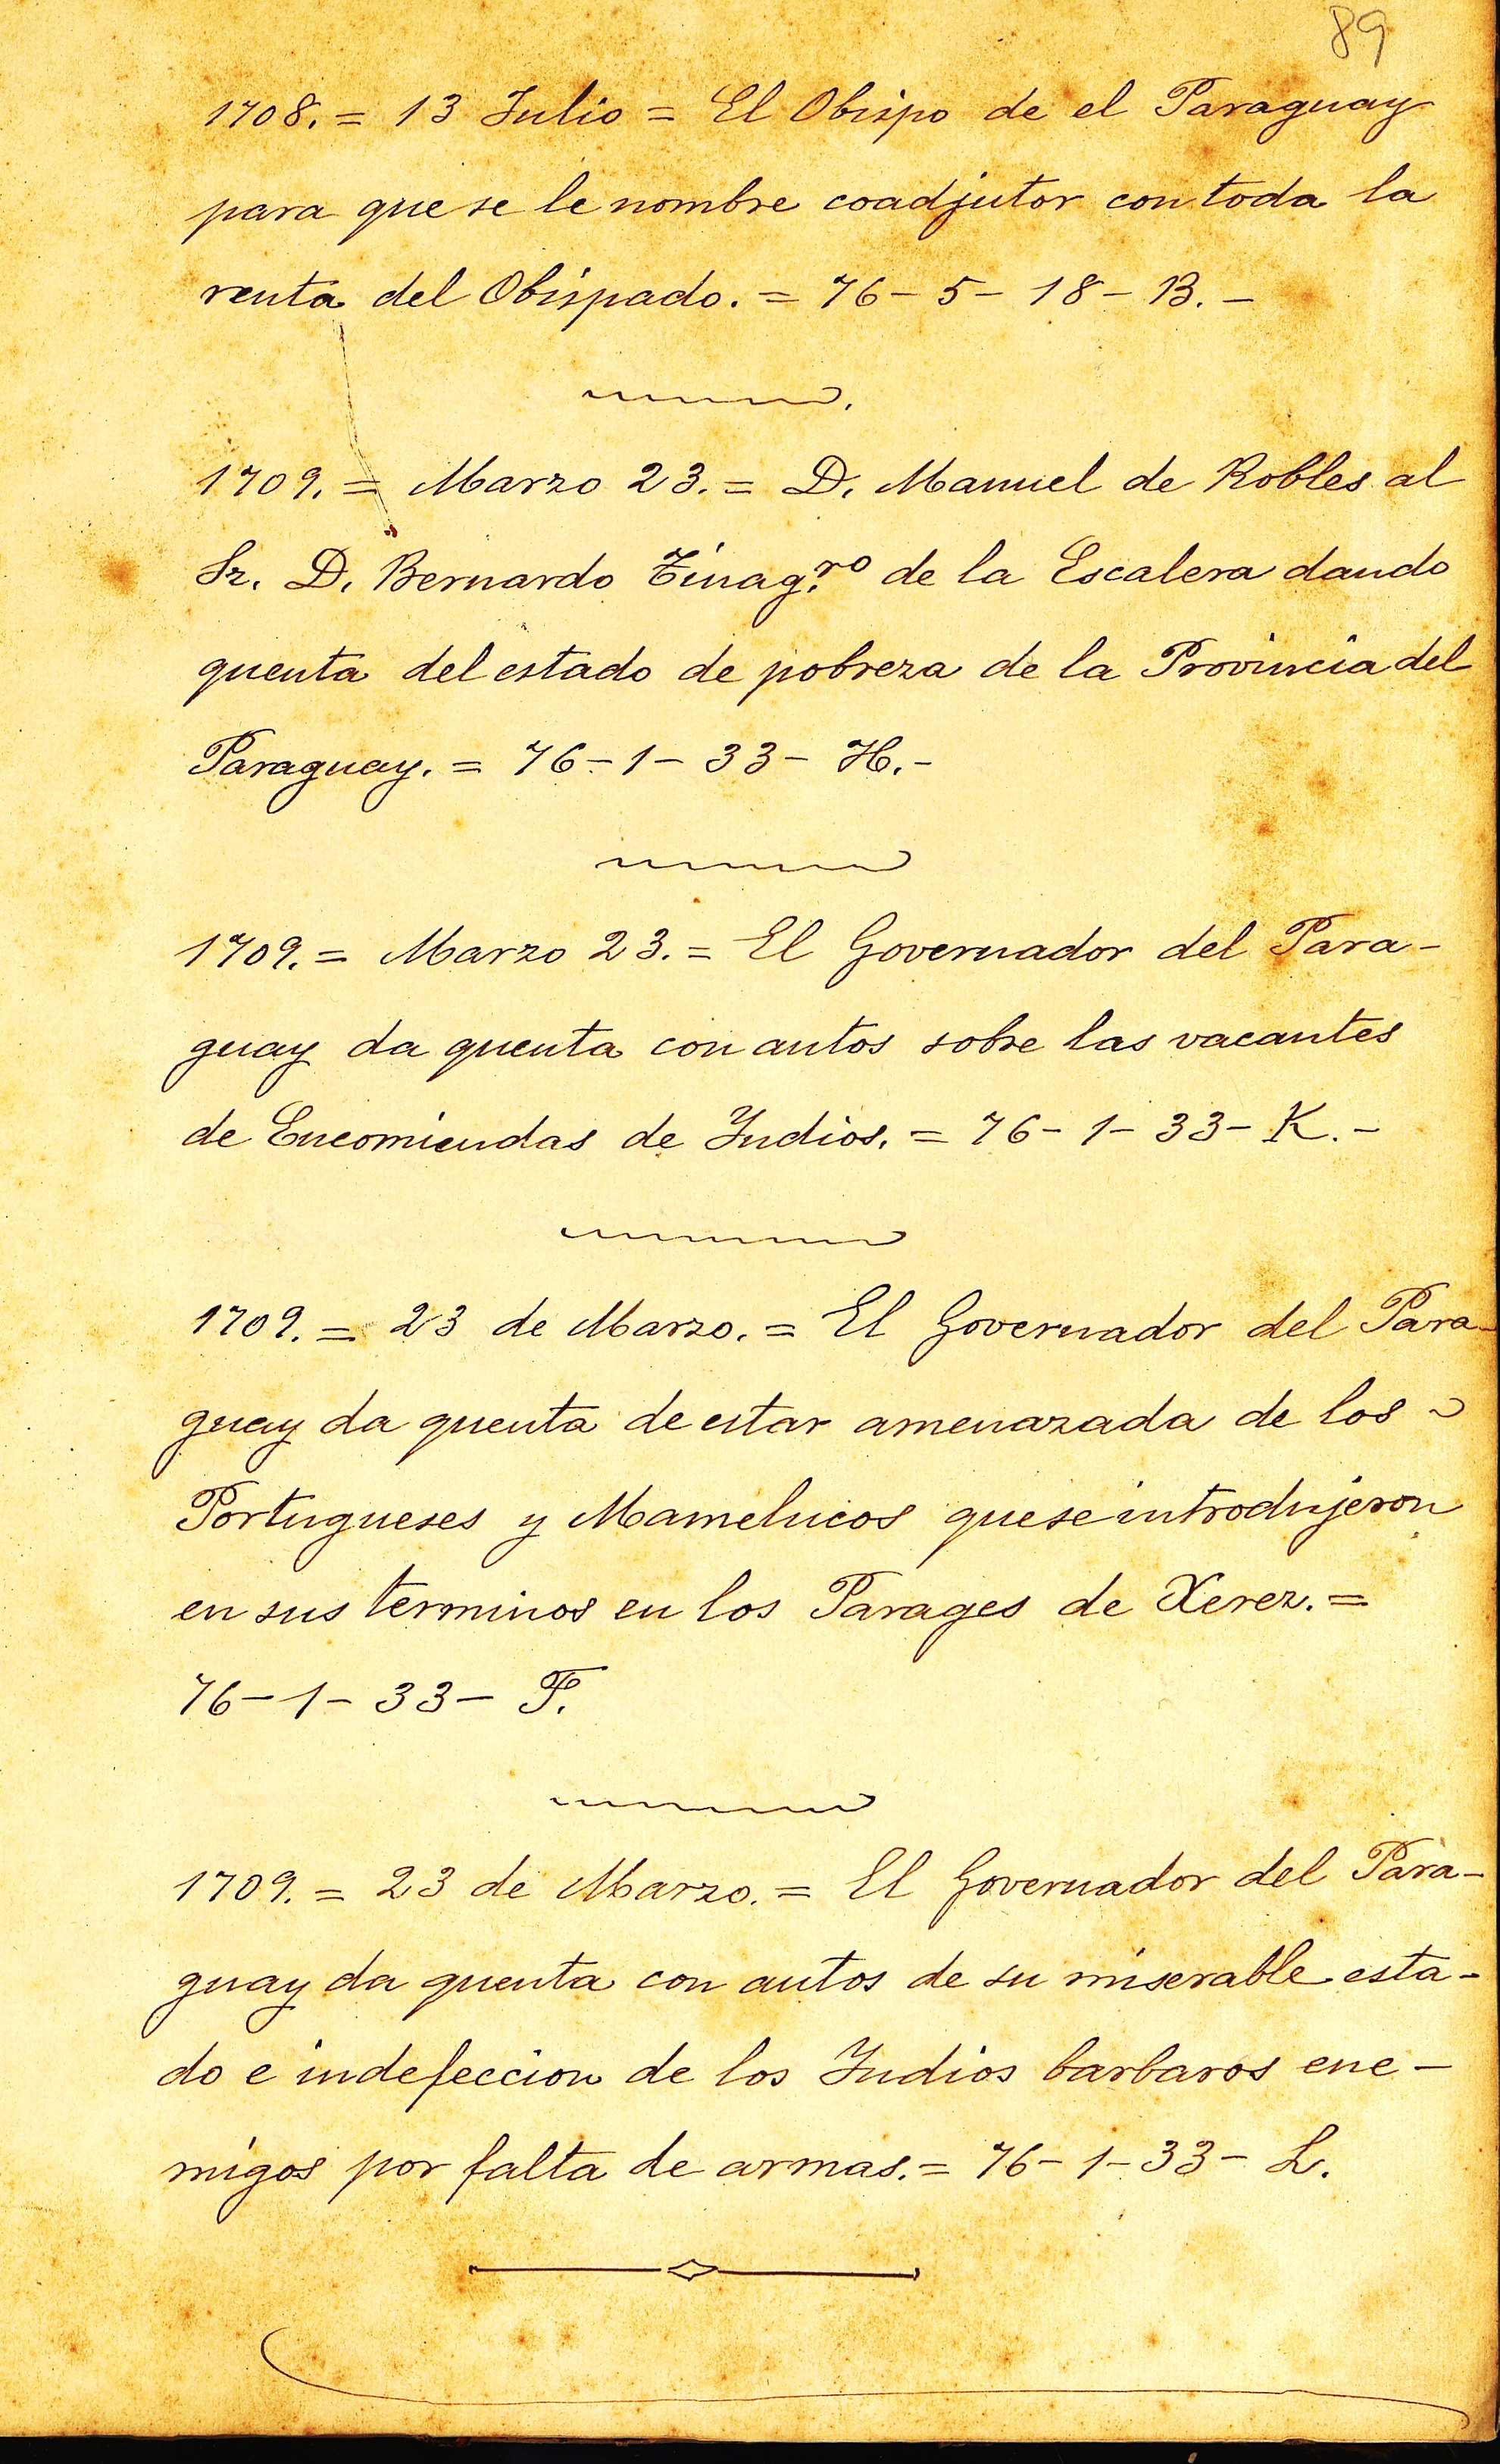 89
1708. = 13 Julio = El Obispo de el Paraguay
para que se le nombre coadjutor con toda la
renta del Obispado. = 76 - 5 - 18 - B. -
1709. = Marzo 23. = D. Manuel de Robles al
Sr. D. Bernardo Tinag.ro de la Escalera dando
quenta del estado de pobreza de la Provincia del
Paraguay. = 76 - 1 - 33 - H. -
1709. = Marzo 23. = El Governador del Para-
guay da quenta con autos sobre las vacantes
de Encomiendas de Indios. = 76 - 1 - 33 - K. -
1709. = 23 de Marzo. = El Governador del Para-
guay da quenta de estar amenazada de los
Portugueses y Mamelucos que se introdujeron
en sus terminos en los Parages de Xerez. =
76 - 1 - 33 - F.
1709. = 23 de Marzo. = El Governador del Para-
guay da quenta con autos de su miserable esta-
do e indefeccion de los Indios barbaros ene-
migos por falta de armas. = 76 - 1 - 33 - L.